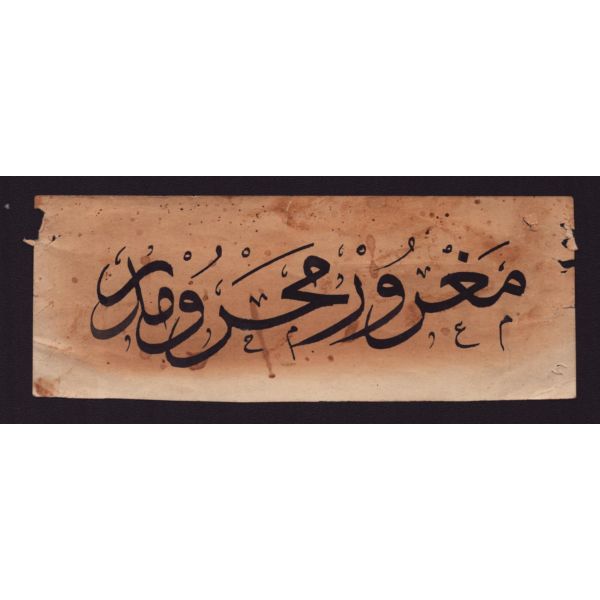 مَغْرُورْ مَحْرُومْدُرْ